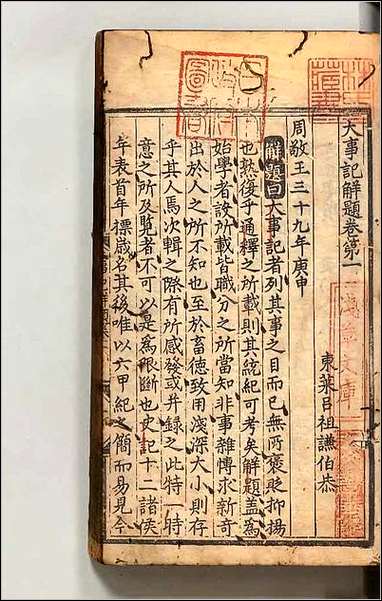 大事記解題卷第一
東萊呂祖謙伯恭
周敬王三十九年庚申
解題曰大事記者列其事之目而已無所褒貶抑揚
也熟復乎通釋之所載則其統紀可考矣解題蓋爲
始學者設所載皆職分之所當知非事雜博求新奇
出於人之所不知也至於畜德致用淺深大小則存
乎其人焉次輯之際有所感發或并錄之此特一時
意之所及覽者不可以是爲限斷也史記十二諸侯
年表首年標歲名其後唯以六甲紀之簡而易見今
淺草文庫
林氏藏書
日本政府圖書